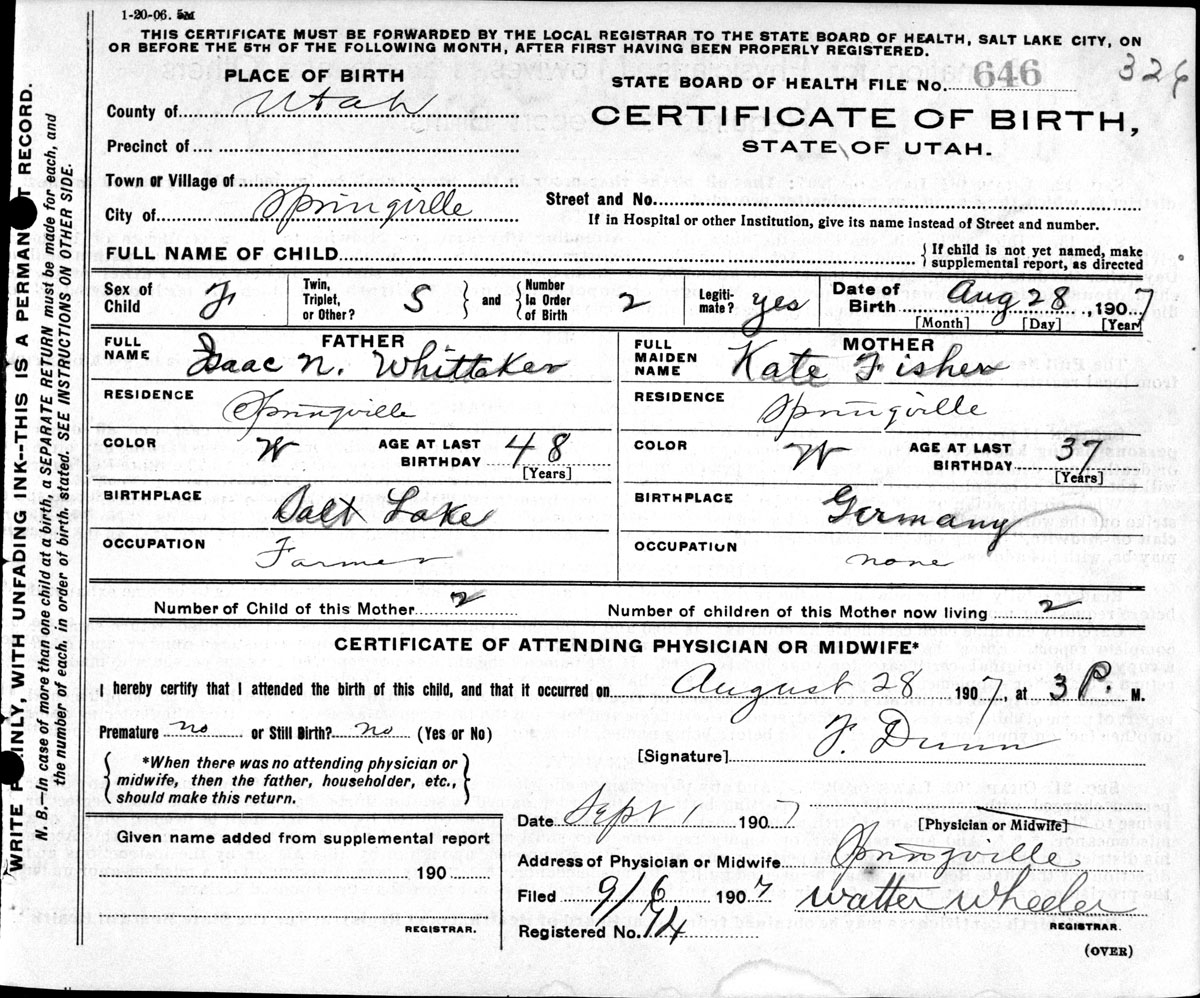 1-20-06. 5M
THIS CERTIFICATE MUST BE FORWARDED BY THE LOCAL REGISTRAR TO THE STATE BOARD OF HEALTH, SALT LAKE CITY, ON
OR BEFORE THE 5TH OF THE FOLLOWING MONTH, AFTER FIRST HAVING BEEN PROPERLY REGISTERED.
326
PLACE OF BIRTH
STATE BOARD OF HEALTH FILE No. 646
County of Utah
CERTIFICATE OF BIRTH,
Precinct of
STATE OF UTAH.
Town or Village of
Street and No.
City of Springville
If in Hospital or other Institution, give its name instead of Street and number.
FULL NAME OF CHILD
{ If child is not yet named, make
supplemental report, as directed
Sex of Child F
Twin, Triplet, or Other? S
{ and } Number In Order of Birth 2
Legitimate? yes
Date of Birth Aug 28, 1907
[Month] [Day] [Year]
FATHER
FULL NAME Isaac N. Whittaker
RESIDENCE Springville
COLOR W AGE AT LAST BIRTHDAY 48
[Years]
BIRTHPLACE Salt Lake
OCCUPATION Farmer
MOTHER
FULL MAIDEN NAME Kate Fisher
RESIDENCE Springville
COLOR W AGE AT LAST BIRTHDAY 37
[Years]
BIRTHPLACE Germany
OCCUPATION none
Number of Child of this Mother 2 Number of children of this Mother now living 2
CERTIFICATE OF ATTENDING PHYSICIAN OR MIDWIFE*
I hereby certify that I attended the birth of this child, and that it occurred on August 28 1907, at 3 P. M.
Premature no or Still Birth? no (Yes or No)
[Signature] F. Dunn
[Physician or Midwife]
{ *When there was no attending physician or
midwife, then the father, householder, etc.,
should make this return. }
Date Sept 1 1907
Given name added from supplemental report
190
REGISTRAR.
Address of Physician or Midwife Springville
Filed 9/6 1907 Walter Wheeler
REGISTRAR.
Registered No. 74
(OVER)
WRITE PLAINLY, WITH UNFADING INK--THIS IS A PERMANENT RECORD.
N. B.—In case of more than one child at a birth, a SEPARATE RETURN must be made for each, and
the number of each, in order of birth, stated. SEE INSTRUCTIONS ON OTHER SIDE.